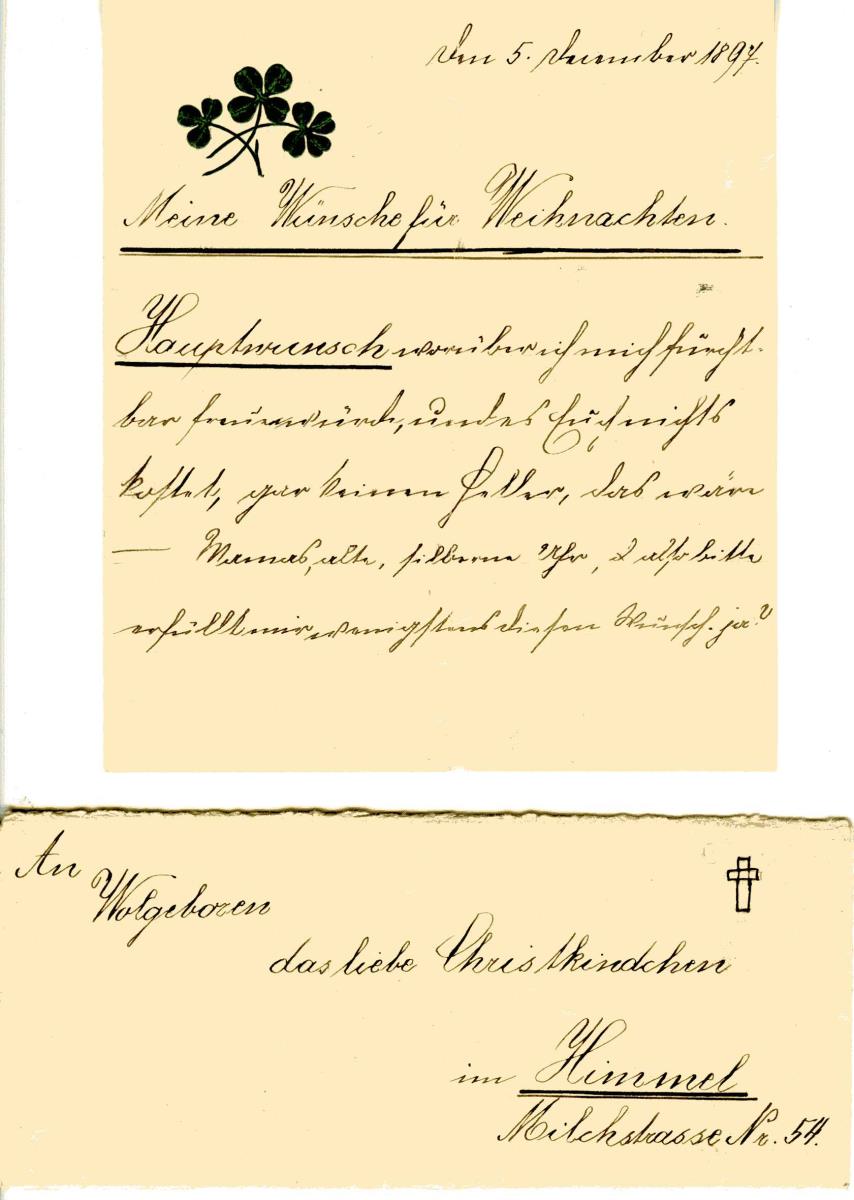 Den 5. December 1897.
Meine Wünsche für Weihnachten.
Hauptwunsch worüber ich mich fürcht-
bar freuen würde, und es Euch nichts
kostet, gar keinen Heller, das wäre
— Mamas, alte, silberne Uhr, also bitte
erfüllt mir wenigstens diesen Wunsch. ja?
An
Wolgeboren
das liebe Christkindchen
im Himmel
Milchstrasse Nr. 54.